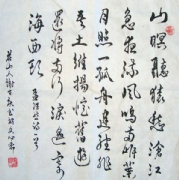 山暝聽猿愁滄江
急夜流風鳴兩岸葉
月照一孤舟建德非
吾土維揚憶舊遊
還將兩行淚遙寄
海西頭 孟浩然詩一首